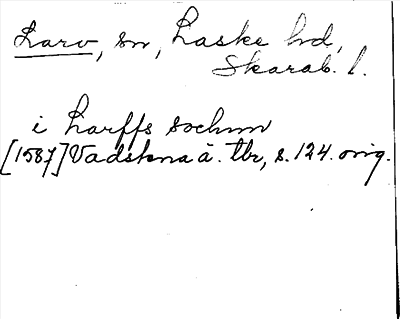 Larv, sn, Laske hd,
Skarab. l.
i Larffs sochnn
[1587] Vadstena ä. tbr, s. 124. orig.